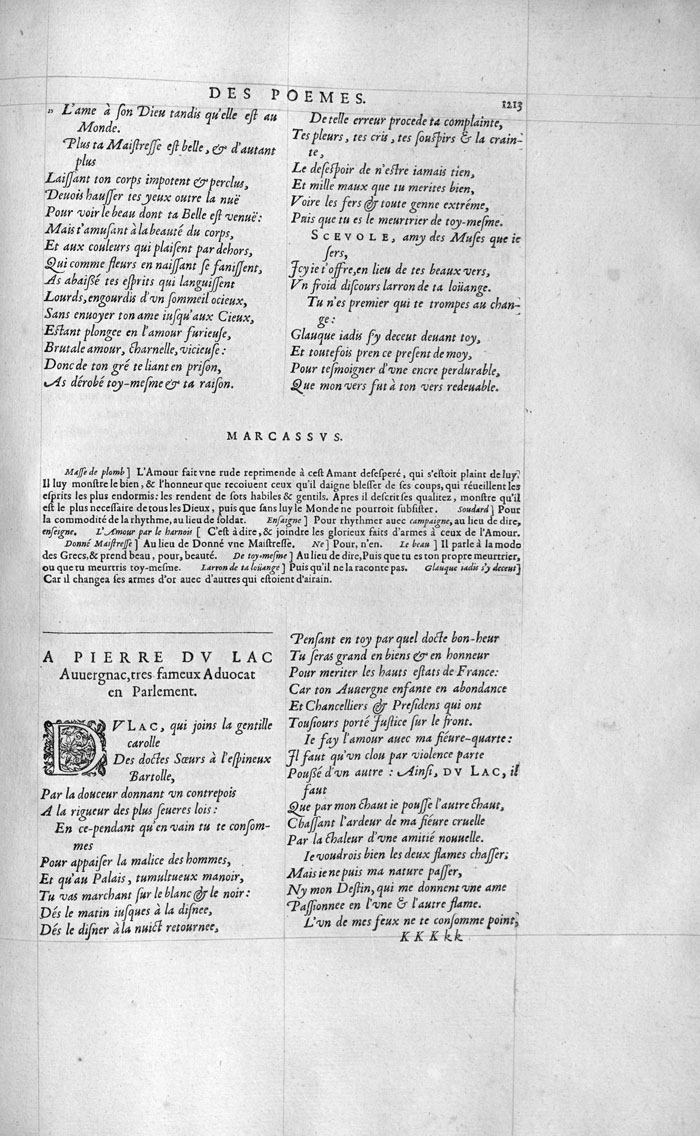 DES POEMES.
1213
„ L'ame à ſon Dieu tandis qu'elle eſt au
Monde.
Plus ta Maiſtreſſe eſt belle, & d'autant
plus
Laiſſant ton corps impotent & perclus,
Deuois hauſſer tes yeux outre la nuë
Pour voir le beau dont ta Belle eſt venuë:
Mais t'amuſant à la beauté du corps,
Et aux couleurs qui plaiſent par dehors,
Qui comme fleurs en naiſſant ſe faniſſent,
As abaißé tes eſprits qui languiſſent
Lourds, engourdis d'vn ſommeil ocieux,
Sans enuoyer ton ame iuſqu'aux Cieux,
Eſtant plongee en l'amour furieuſe,
Brutale amour, charnelle, vicieuſe:
Donc de ton gré te liant en priſon,
As dérobé toy-meſme & ta raiſon.
De telle erreur procede ta complainte,
Tes pleurs, tes cris, tes ſouſpirs & la crain-
te,
Le deſeſpoir de n'eſtre iamais tien,
Et mille maux que tu merites bien,
Voire les fers & toute genne extréme,
Puis que tu es le meurtrier de toy-meſme.
SCEVOLE, amy des Muſes que ie
ſers,
Icy ie t'offre, en lieu de tes beaux vers,
Vn froid diſcours larron de ta loüange.
Tu n'es premier qui te trompes au chan-
ge:
Glauque iadis ſ'y deceut deuant toy,
Et toutefois pren ce preſent de moy,
Pour teſmoigner d'vne encre perdurable,
Que mon vers fut à ton vers redeuable.
MARCASSVS.
Maſſe de plomb] L'Amour fait vne rude reprimende à ceſt Amant deſeſperé, qui s'eſtoit plaint de luy.
Il luy monſtre le bien, & l'honneur que recoiuent ceux qu'il daigne bleſſer de ſes coups, qui réueillent les
eſprits les plus endormis: les rendent de ſots habiles & gentils. Apres il deſcrit ſes qualitez, monſtre qu'il
eſt le plus neceſſaire de tous les Dieux, puis que ſans luy le Monde ne pourroit ſubſiſter. Soudard] Pour
la commodité de la rhythme, au lieu de ſoldat. Enſaigne] Pour rhythmer auec campaigne, au lieu de dire,
enſeigne. L'Amour par le harnois [ C'eſt à dire, & joindre les glorieux faits d'armes à ceux de l'Amour.
Donné Maiſtreſſe] Au lieu de Donné vne Maiſtreſſe. Ne] Pour, n'en. Le beau] Il parle à la mode
des Grecs, & prend beau, pour, beauté. De toy-meſme] Au lieu de dire, Puis que tu es ton propre meurtrier,
ou que tu meurtris toy-meſme. Larron de ta loüange] Puis qu'il ne la raconte pas. Glauque iadis s'y deceut]
Car il changea ſes armes d'or auec d'autres qui eſtoient d'airain.
A PIERRE DV LAC
Auuergnac, tres fameux Aduocat
en Parlement.
DVLAC, qui joins la gentille
carolle
Des doctes Sœurs à l'eſpineux
Bartolle,
Par la douceur donnant vn contrepois
A la rigueur des plus ſeueres lois:
En ce-pendant qu'en vain tu te conſom-
mes
Pour appaiſer la malice des hommes,
Et qu'au Palais, tumultueux manoir,
Tu vas marchant ſur le blanc & le noir:
Dés le matin iuſques à la diſnee,
Dés le diſner à la nuict retournee,
Penſant en toy par quel docte bon-heur
Tu ſeras grand en biens & en honneur
Pour meriter les hauts eſtats de France:
Car ton Auuergne enfante en abondance
Et Chancelliers & Preſidens qui ont
Touſiours porté Iuſtice ſur le front.
Ie fay l'amour auec ma fiéure-quarte:
Il faut qu'vn clou par violence parte
Poußé d'vn autre: Ainſi, DV LAC, il
faut
Que par mon chaut ie pouſſe l'autre chaut,
Chaſſant l'ardeur de ma fiéure cruelle
Par la chaleur d'vne amitié nouuelle.
Ie voudrois bien les deux flames chaſſer;
Mais ie ne puis ma nature paſſer,
Ny mon Deſtin, qui me donnent vne ame
Paſſionnee en l'vne & l'autre flame.
L'vn de mes feux ne te conſomme point,
KKKkk